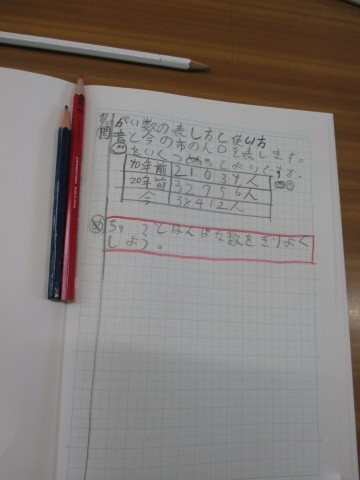 がい数の表し方と使い方
問 昔と今の市の人口を表します。
をいくつ
40年前 21034人
20年前 32756人
今 38412人
め ちゅうとはんぱな数をきりよく
しよう。